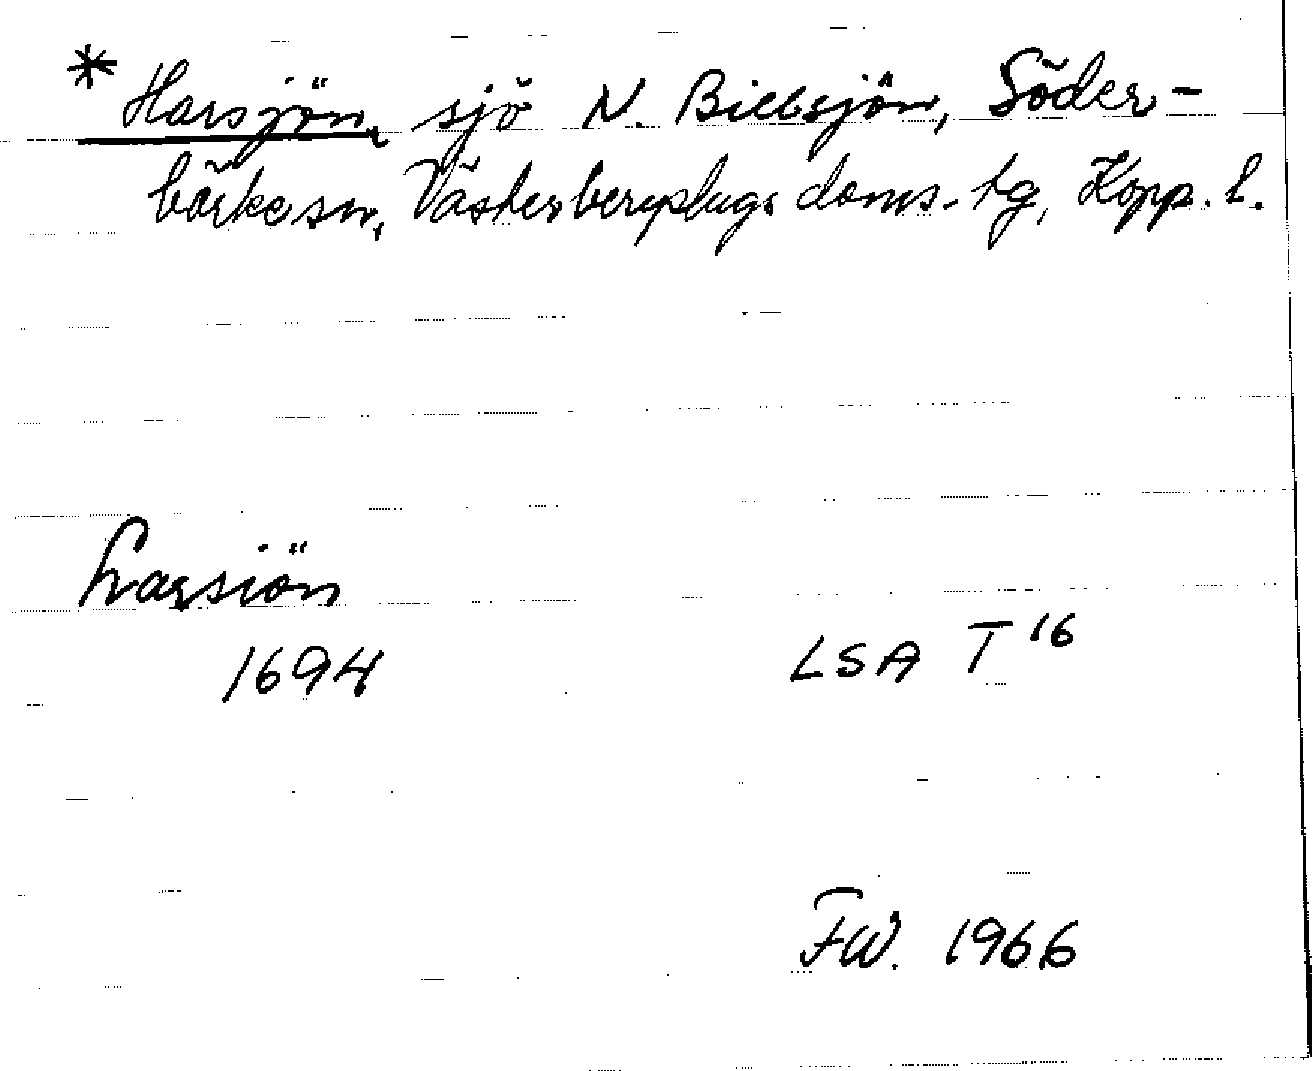 * Harsjön, sjö N. Billsjön, Söder-
bärke sn, Västerbergslags doms. tg, Kopp. l.
harsiön
1694 LSA T 16
FW. 1966